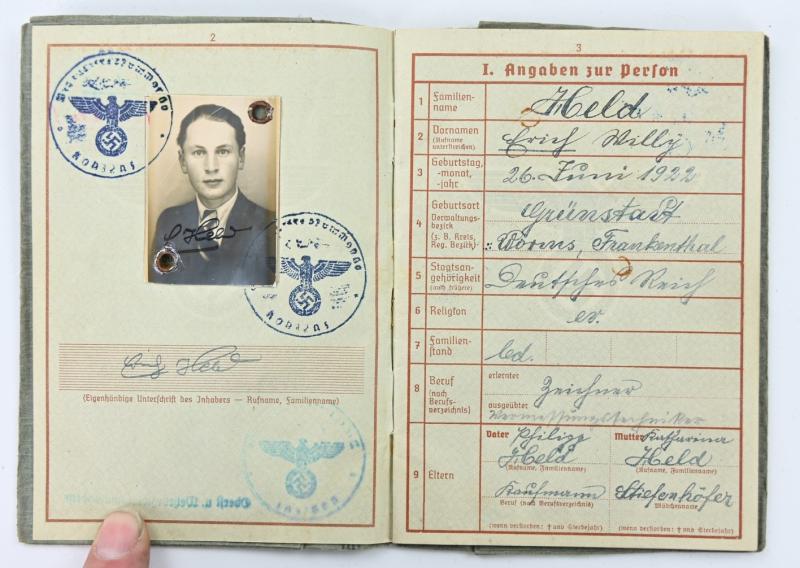 2
E Held
Erich Held
(Eigenhändige Unterschrift des Inhabers — Rufname, Familienname)
3
I. Angaben zur Person
1 Familien-
name
Held
2 Vornamen
(Rufname
unterstreichen)
Erich Willy
3 Geburtstag,
-monat,
-jahr
26. Juni 1922
4 Geburtsort
Verwaltungs-
bezirk
(z. B. Kreis,
Reg. Bezirk)
Grünstadt
Worms, Frankenthal
5 Staatsan-
gehörigkeit
(auch frühere)
Deutsches Reich
6 Religion
ev.
7 Familien-
stand
led.
8 Beruf
(nach
Berufs-
verzeichnis)
erlernter
Zeichner
ausgeübter
Vermessungstechniker
9 Eltern
Vater Philipp
Held
(Rufname, Familienname)
Kaufmann
Beruf (nach Berufsverzeichnis)
(wenn verstorben: † und Sterbejahr)
Mutter Katharina
Held
(Rufname, Familienname)
Stiefenhöfer
Mädchenname
(wenn verstorben: † und Sterbejahr)